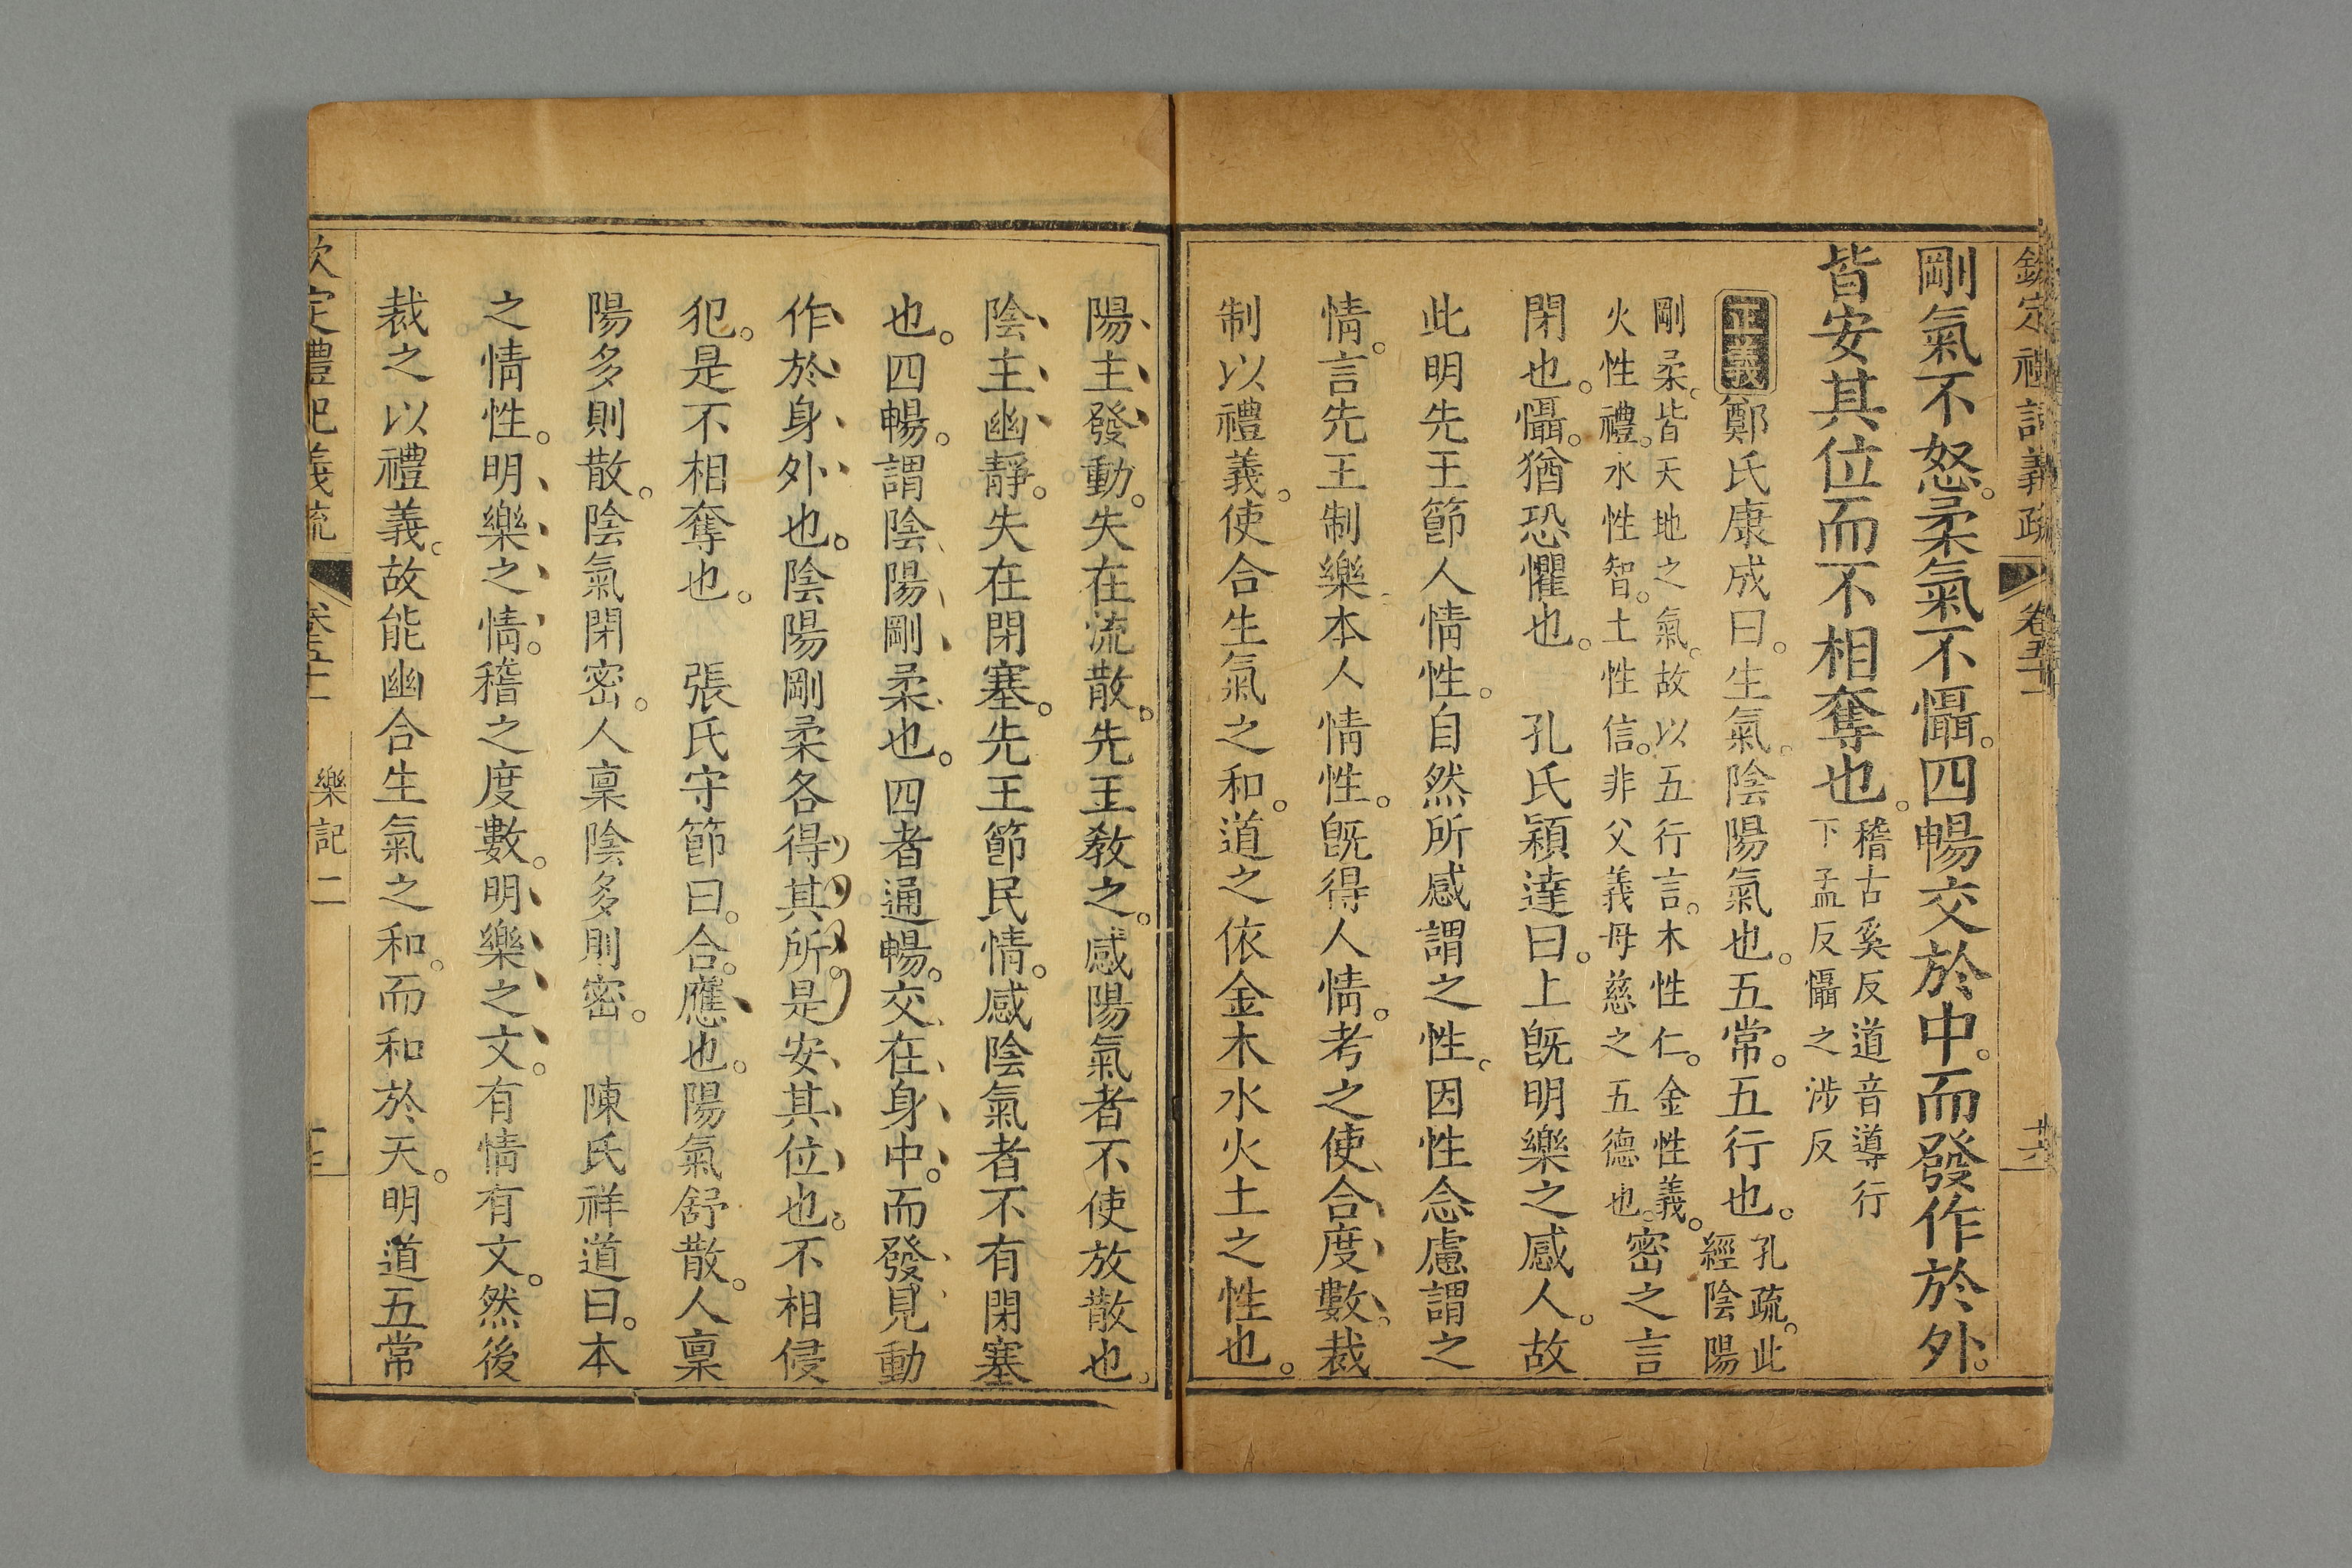 欽定禮記義疏 卷五十一 十六
剛氣不怒。柔氣不懾。四暢交於中。而發作於外。
皆安其位而不相奪也。稽古奚反道音導行
下孟反懾之涉反
正義鄭氏康成曰。生氣。陰陽氣也。五常。五行也。孔疏。此
經陰陽
剛柔。皆天地之氣。故以五行言。木性仁。金性義。
火性禮。水性智。土性信。非父義母慈之五德也。密之言
閉也。懾。猶恐懼也。 孔氏穎達曰。上旣明樂之感人。故
此明先王節人情性。自然所感謂之性。因性念慮謂之
情。言先王制樂本人情性。旣得人情。考之使合度數。裁
制以禮義。使合生氣之和。道之依金木水火土之性也。
陽主發動。失在流散。先王敎之。感陽氣者不使放散也。
陰主幽靜。失在閉塞。先王節民情。感陰氣者不有閉塞
也。四暢。謂陰陽剛柔也。四者通暢。交在身中。而發見動
作於身外也。陰陽剛柔各得其所。是安其位也。不相侵
犯。是不相奪也。 張氏守節曰。合。應也。陽氣舒散。人稟
陽多則散。陰氣閉密。人稟陰多則密。 陳氏祥道曰。本
之情性。明樂之情。稽之度數。明樂之文。有情有文。然後
裁之以禮義。故能幽合生氣之和。而和於天。明道五常
欽定禮記義疏 卷五十一 樂記二